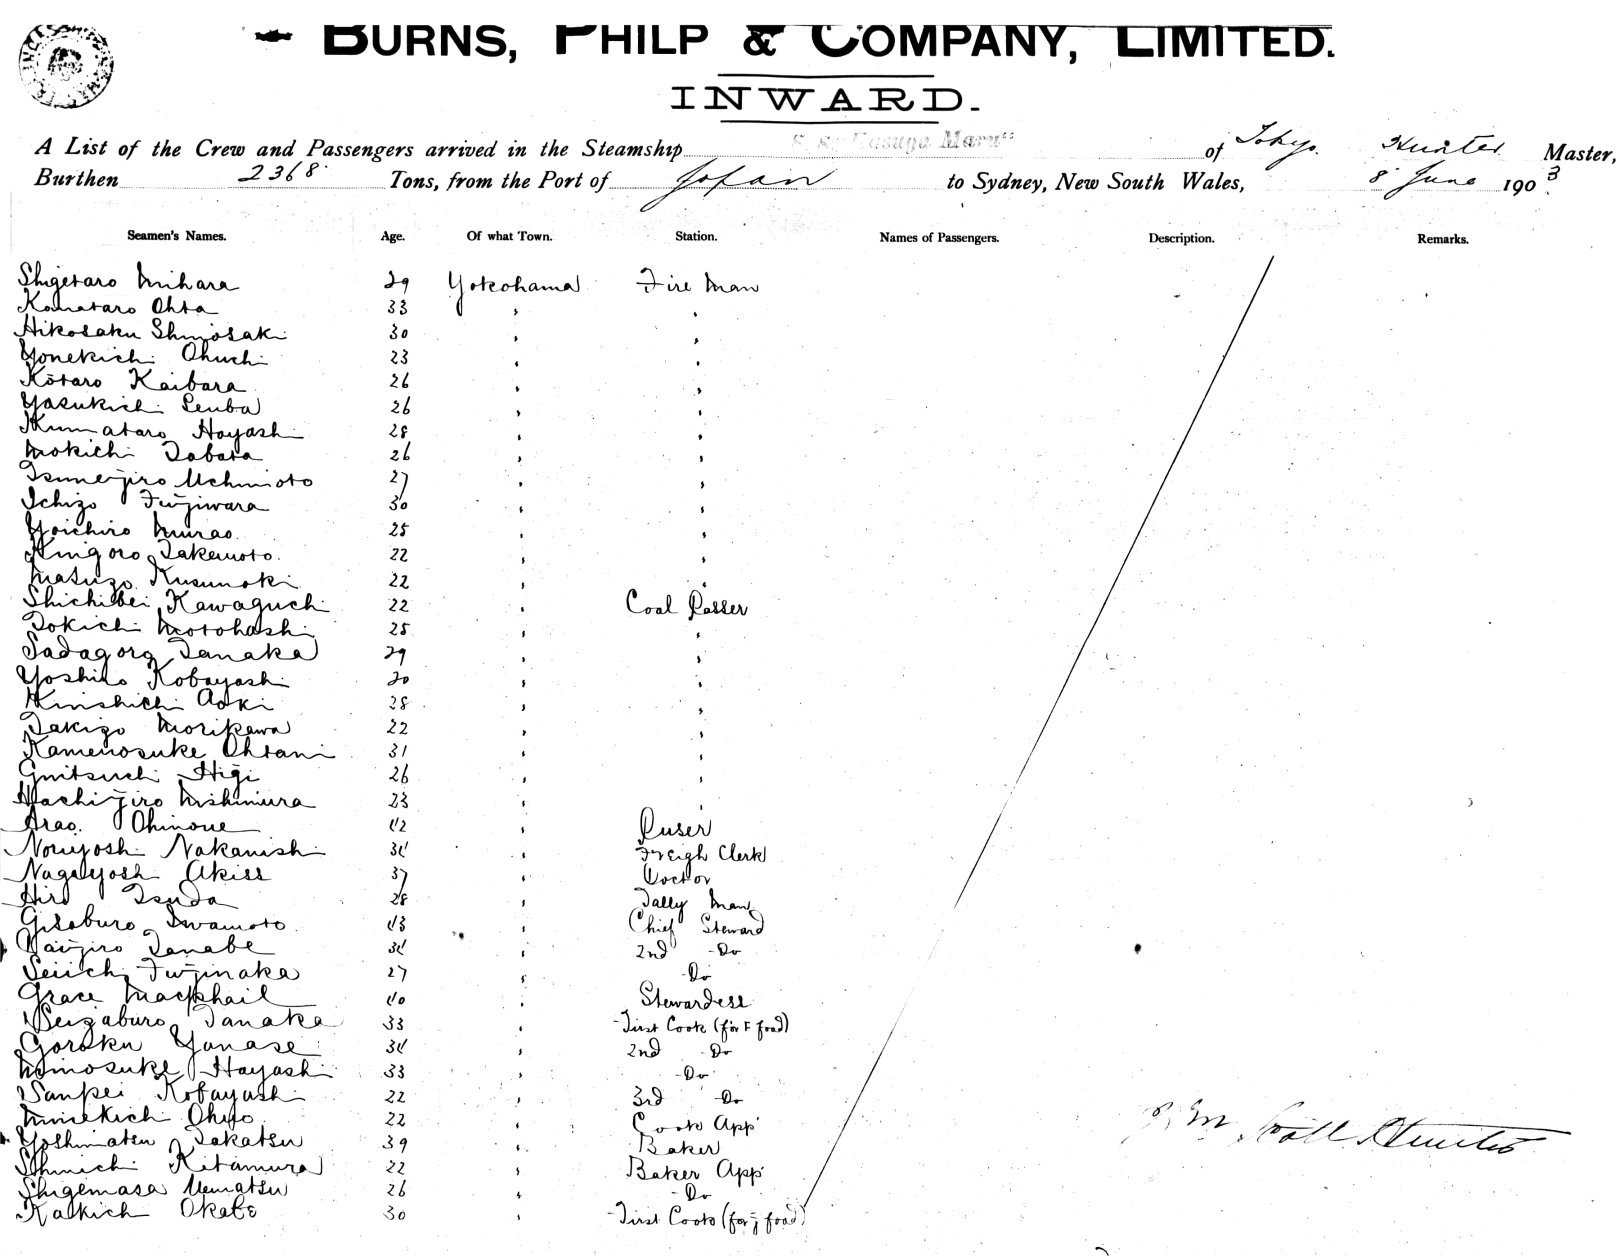 BURNS, PHILP & COMPANY, LIMITED.
INWARD.
A List of the Crew and Passengers arrived in the Steamship S. S. "Kasuga Maru" of Tokyo. Hunter Master,
Burthen 2368 Tons, from the Port of Japan to Sydney, New South Wales, 8 June 1903
Seamen's Names. Age. Of what Town. Station. Names of Passengers. Description. Remarks.
Shigetaro Mihara 29 Yokohama Fire Man
Kamataro Ohta 33 " "
Hikosaku Shmosaki 30 " "
Yonekichi Ohuchi 23 " "
Kōtaro Kaibara 26 " "
Yasukichi Senba 26 " "
Kumataro Hayashi 28 " "
Mokichi Tabata 26 " "
Tsunejiro Uchimoto 27 " "
Ichizo Fujiwara 30 " "
Yoichiro Murao 25 " "
Kingoro Takemoto. 22 " "
Matuzo Kusunoki 22 " "
Shichibei Kawaguchi 22 " Coal Passer
Tokichi Motohashi 25 " "
Sadagoro Tanaka 29 " "
Yoshizo Kobayashi 20 " "
Kinshichi Aoki 28 " "
Takizo Morikawa 22 " "
Kamenosuke Ohtani 31 " "
Higi 26 " "
Hachijiro Nishimura 23 " "
Arao. Ohinoue 42 " Puser
Noriyoshi Nakanishi 34 " Freigh Clerk
Nagayoshi 37 " Doctor
Hiro Tsuda 28 " Tally Man
Gisaburo Iwamoto. 43 " Chief Steward
Daijiro Tanabe 34 " 2nd Do
Seiichi Fujinaka 27 " Do
Grace Mackhail 40 " Stewardess
Seizaburo Tanaka 33 " First Cook (for F food)
Goroku Yanase 34 " 2nd Do
Minosuke Hayashi 33 " Do
Sanpei Kobayashi 22 " 3rd Do
Minekichi 22 " Cook App
Yoshimatsu Takatsu 39 " Baker
Shinichi Kitamura 22 " Baker App
Shigemasa Uematsu 26 " Do
Kakichi Okabe 30 " First Cook (for j food)